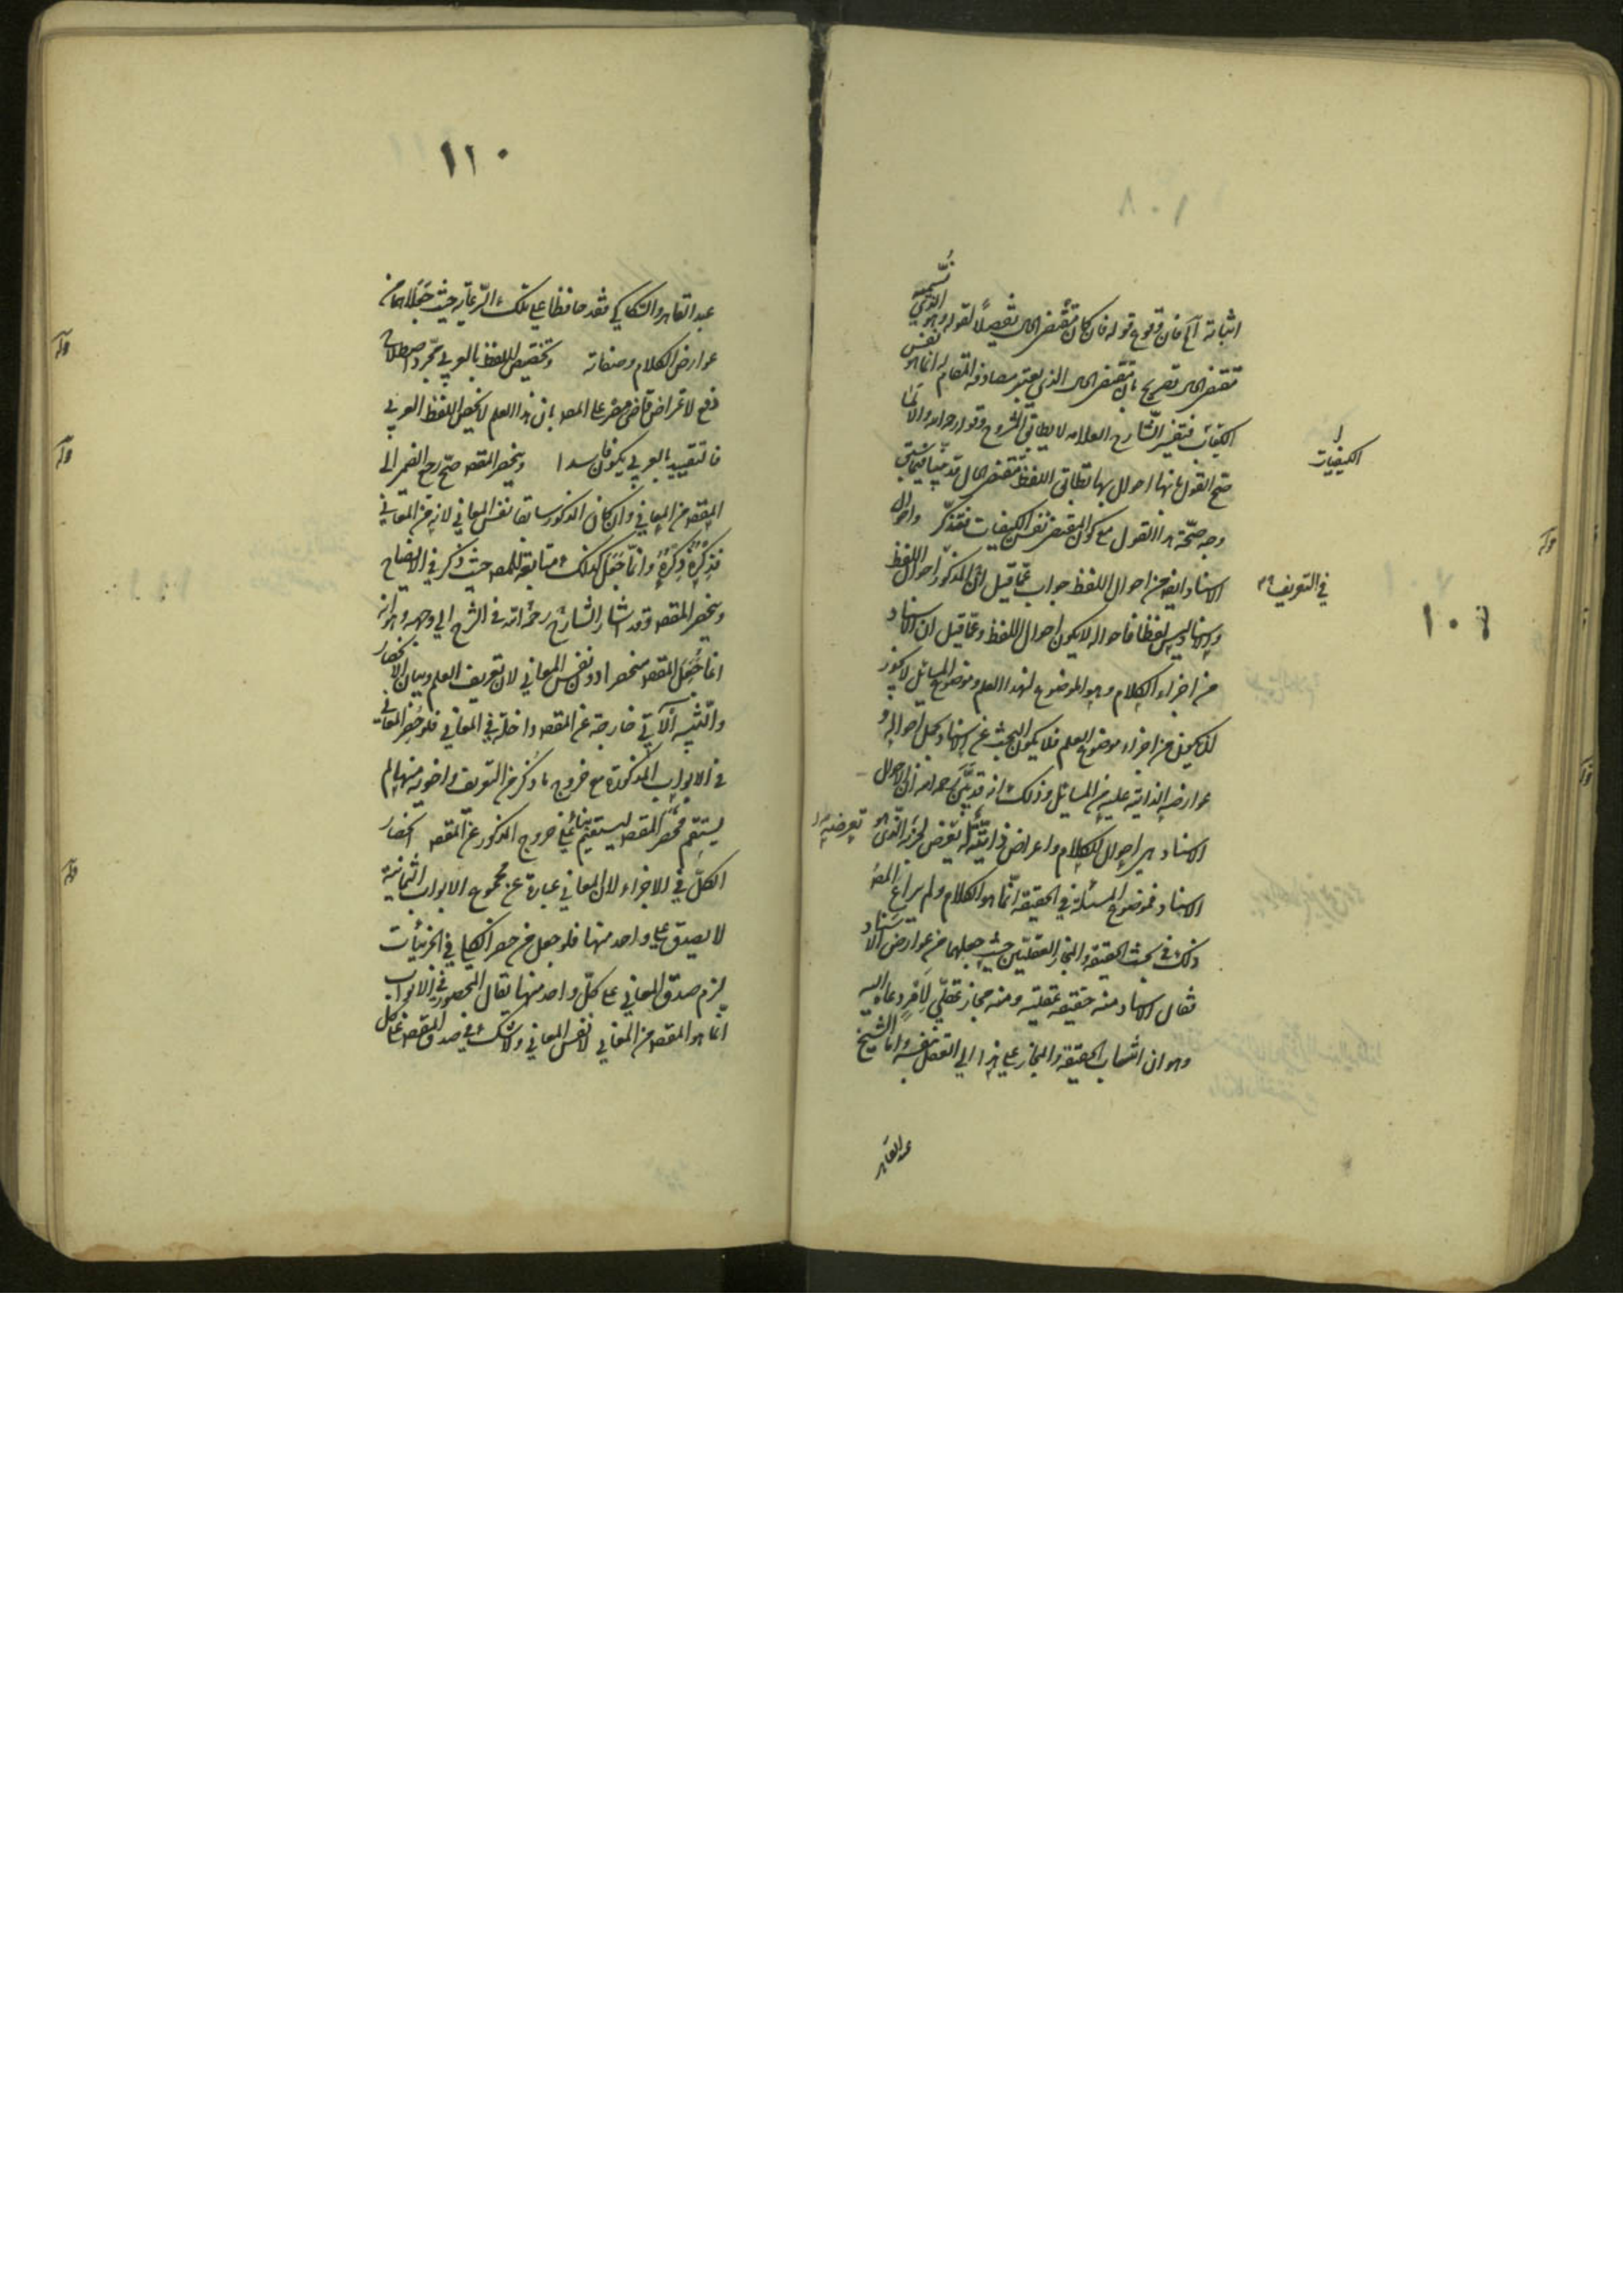 اثباته آه فان وقوع قوله فان كان مقتضى الحال تفصيلا لقوله وهو الذي نسميه
مقتضى الحال تصريح بان مقتضى الحال الذي يعتبر مصادفة المقام له انما هو نفس
الكيفيات فتفسير الشارح العلامة لا يطابق المشروح وقوله رحمه الله والا لما
صح القول بانها احوال بها يطابق اللفظ مقتضى الحال قد بينا فيما سبق
وجه صحة هذا القول مع كون المقتضى نفس الكيفيات فتذكر واحوال
الاسناد ايضا من احوال اللفظ جواب عما قيل ان المذكور احوال اللفظ
والاسناد ليس لفظا فاحواله لا يكون احوال اللفظ وعما قيل ان الاسناد
من اجزاء الكلام وهو الموضوع لهذا العلم وموضوع المسائل لا يجوز
ان يكون من اجزاء موضوع العلم فلا يكون البحث عن الاسناد وحمل احواله و
عوارضه الذاتية عليه من المسائل وذلك انه قد بين رحمه الله ان احوال
الاسناد هي احوال الكلام واعراض ذاتية له تعرض لجزئه الذي هو
الاسناد فموضوع المسئلة في الحقيقة انما هو الكلام ولم يراع المص
ذلك في بحث الحقيقة والمجاز العقليين حيث جعلهما من عوارض الاسناد
فقال الاسناد منه حقيقة عقلية ومنه مجاز عقلي لامر دعاه اليه
وهو ان انتساب الحقيقة والمجاز على هذا الى العقل بنفسه واما الشيخ
عبد القاهر
الكيفيات
في التعريف
١٠٦
قوله
١١٠
عبد القاهر والسكاكي فقد حافظا على تلك الرعاية حيث جعلاهما من
عوارض الكلام وصفاته وتخصيص اللفظ بالعربي مجرد اصطلاح
دفع لاعتراض على المص بان هذا العلم لا يخص اللفظ العربي
فالتقييد بالعربي يكون فاسدا وينحصر المقصود صح رجع الضمير الى
المقصود من المعاني وان كان المذكور سابقا نفس المعاني لانه من المعاني
فذكره ذكره وانما جعل كذلك متابعة للمص حيث ذكر في الايضاح
وينحصر المقصود وقد اشار الشارح رحمه الله في الشرح الى وجهه وهو انه
انما جعل المقصود منحصرا دون نفس المعاني لان تعريف العلم وبيان الانحصار
والتنبيه الآتي خارجة عن المقصود داخلة في المعاني فلو حصر المعاني
في الابواب المذكورة مع خروج ما ذكر من التعريف واخويه منها لم
يستقم فحصر المقصود ليستقيم بناء على خروج المذكور عن المقصود انحصار
الكل في الاجزاء لان المعاني عبارة عن مجموع الابواب الثمانية
لا يصدق على واحد منها فلو جعل من حصر الكلي في الجزئيات
لزم صدق المعاني على كل واحد منها يقال المحصور في الابواب
انما هو المقصود من المعاني لا نفس المعاني ولا شك في صدق المقصود على كل
قوله
قوله
قوله